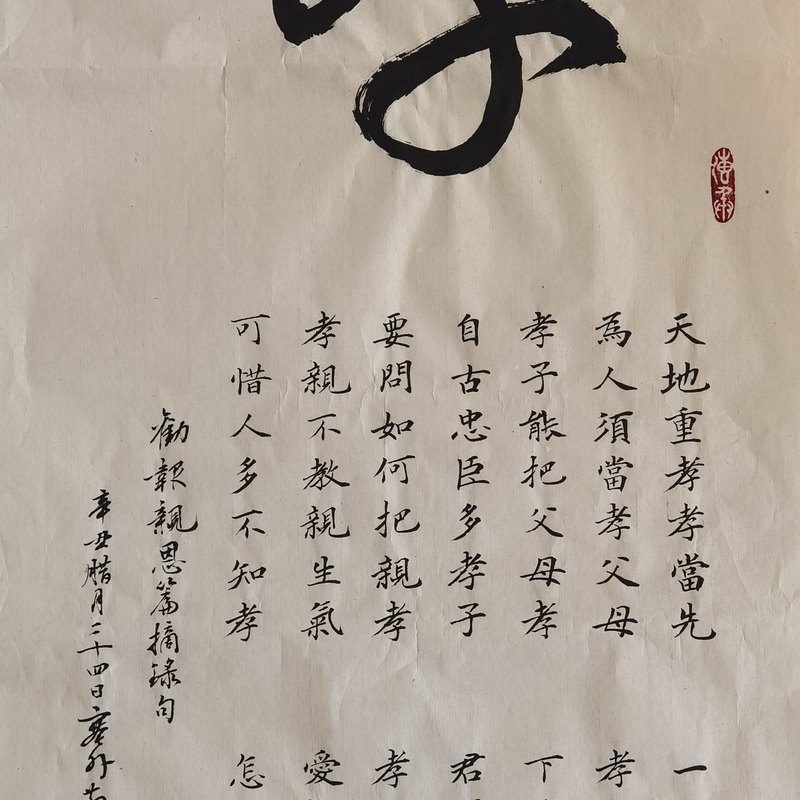 天地重孝孝當先
一
為人須當孝父母
孝
孝子能把父母孝
下
自古忠臣多孝子
君
要問如何把親孝
孝
孝親不教親生氣
愛
可惜人多不知孝
怎
勸報親恩篇摘錄句
辛丑腊月二十四日